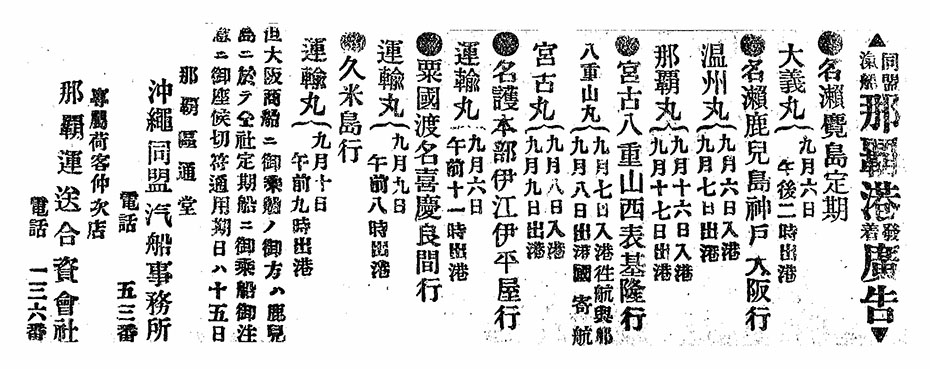 ▲同盟汽船那覇港發着廣告▼
●名瀬覺島定期
大義丸{九月六日午後二時出港
●名瀬鹿兒島神戸大阪行
温州丸{九月六日入港九月七日出港
那覇丸{九月十六日入港九月十七日出港
●宮古八重山西表基隆行
八重山丸{九月七日入港徃航與那九月八日出港國寄航
宮古丸{九月八日入港九月九日出港
●名護本部伊江伊平屋行
運輸丸{九月六日午前十一時出港
●粟國渡名喜慶良間行
運輸丸{九月九日午前八時出港
●久米島行
運輸丸{九月十日午前九時出港
但大阪商船ニ御乘船ノ御方ハ鹿兒
島ニ於テ仝社定期船ニ御乘船御注
意ニ御座候切符通用期日ハ十五日
那覇區通堂
沖繩同盟汽船事務所
電話 五三番
專屬荷客仲次店
那覇運送合資會社
電話 一三六番